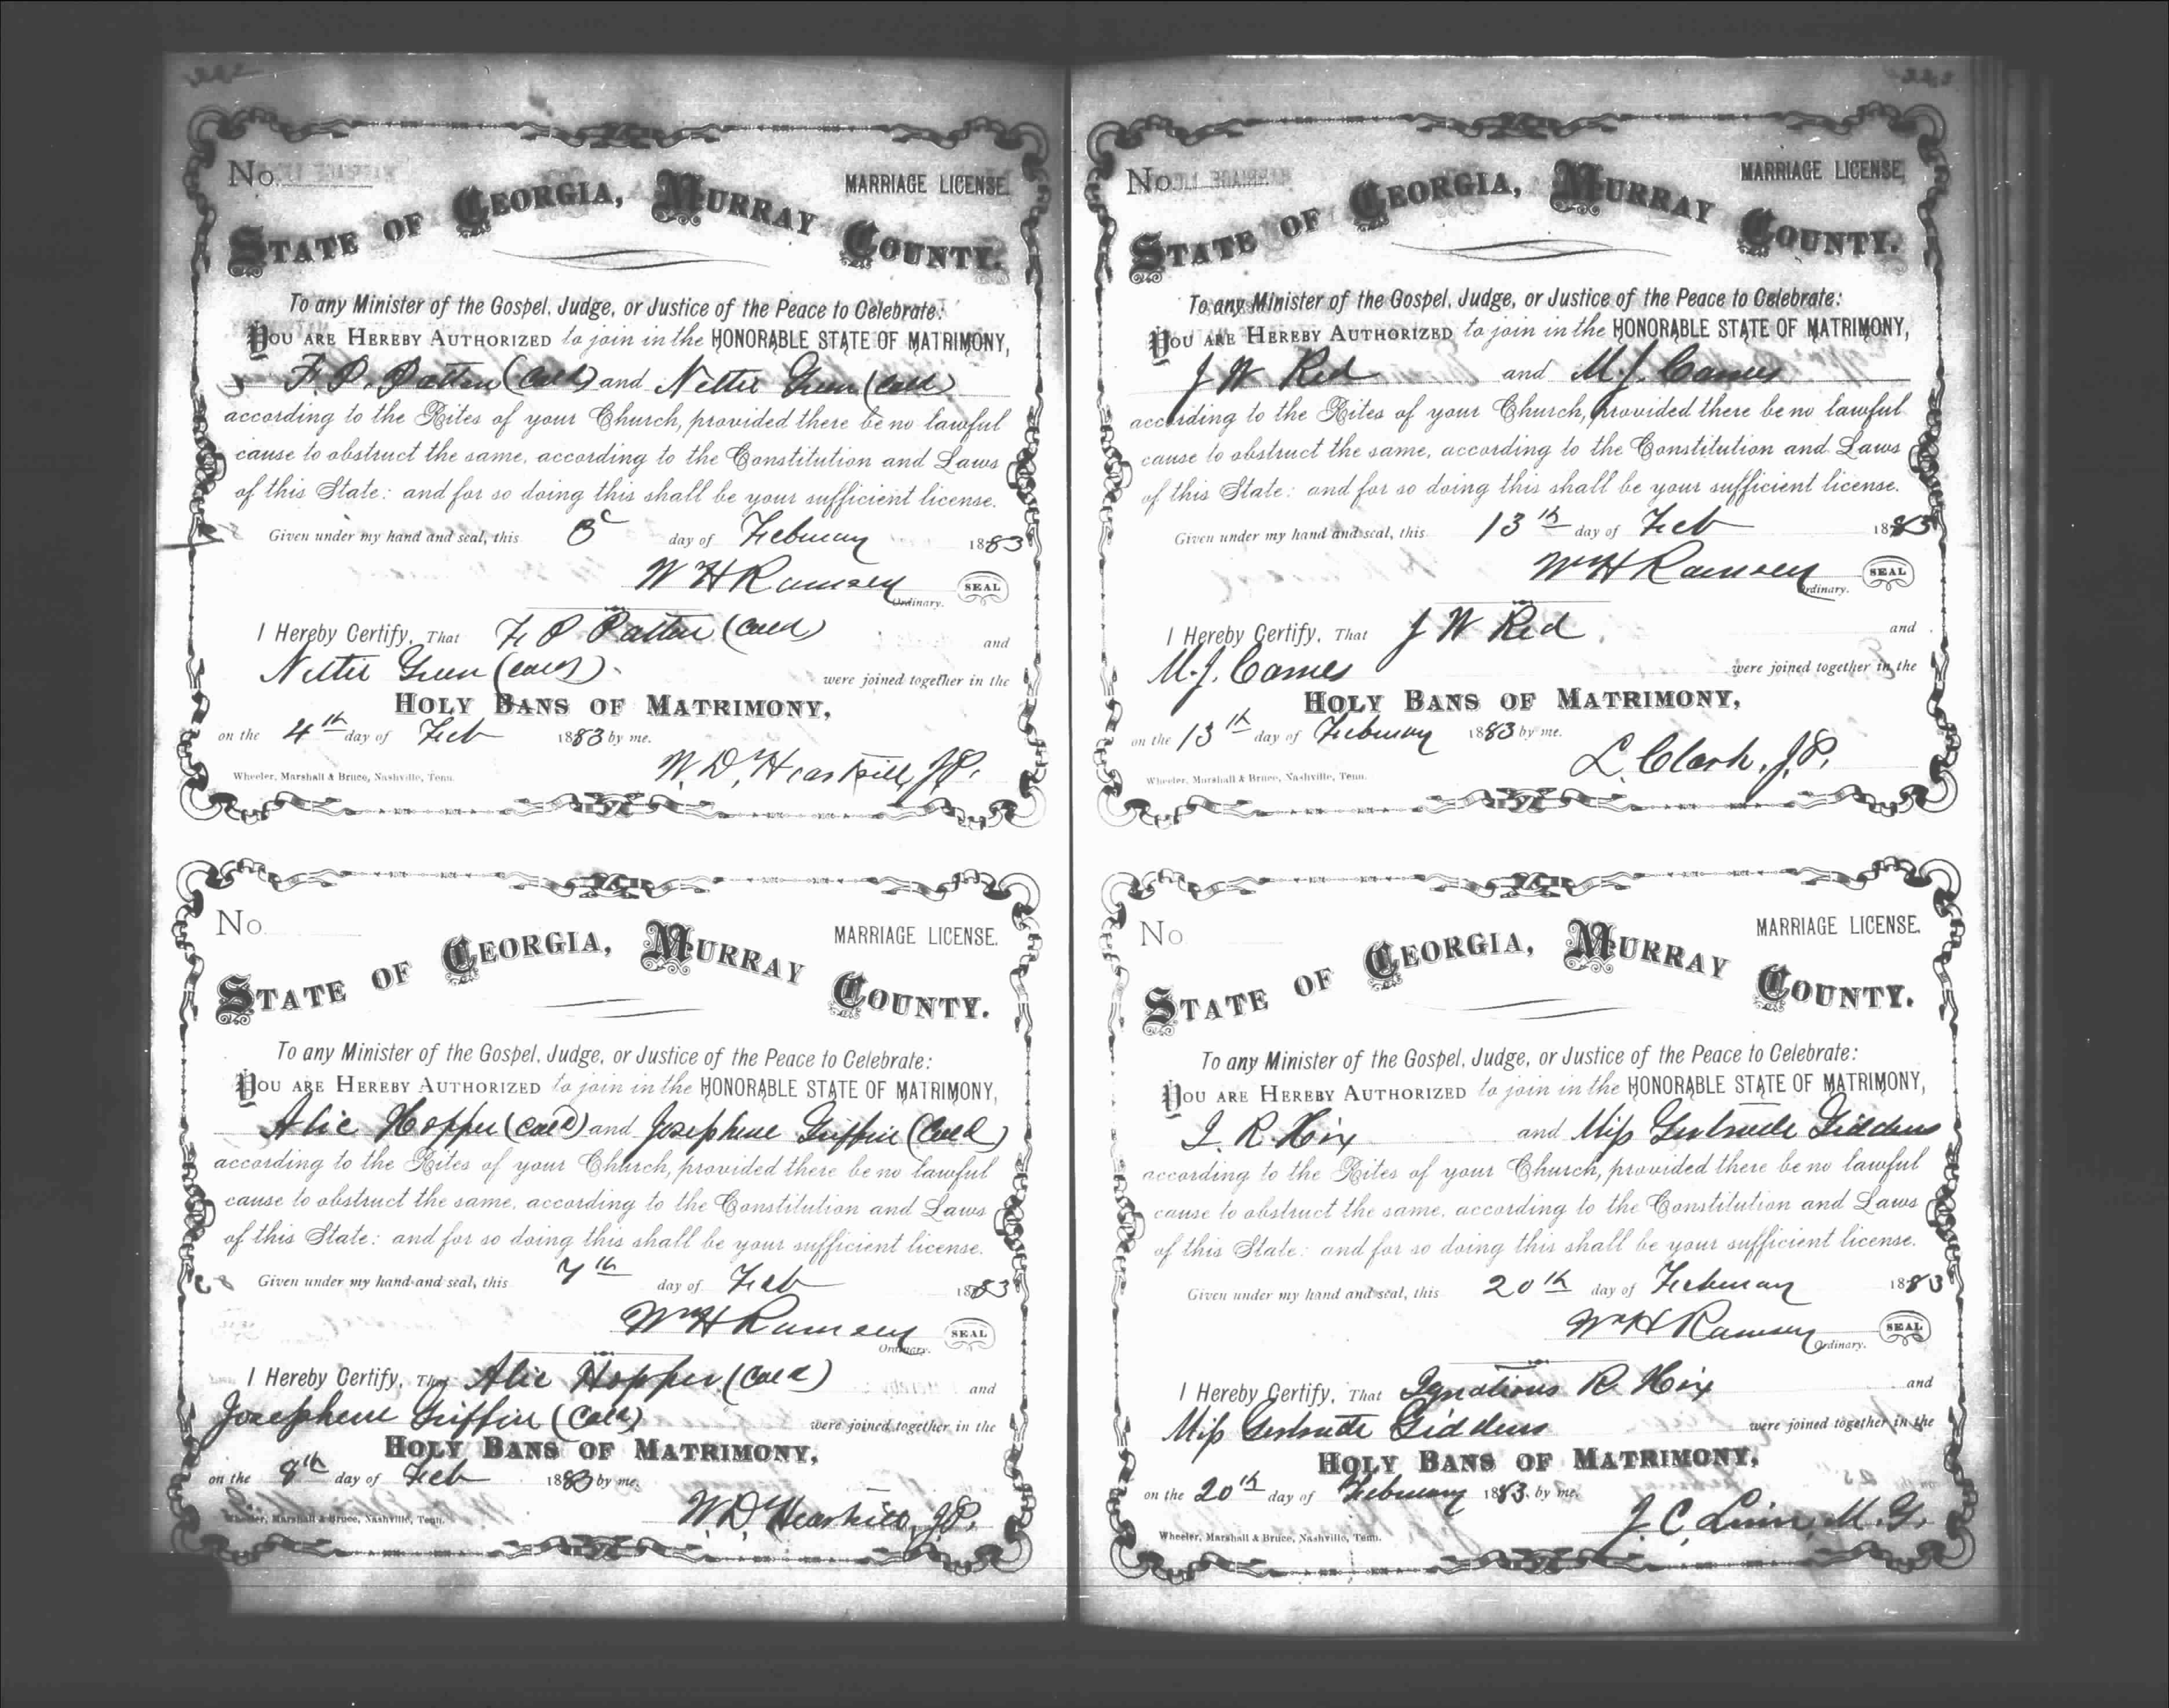 No. MARRIAGE LICENSE.
STATE OF GEORGIA, MURRAY COUNTY.
To any Minister of the Gospel, Judge, or Justice of the Peace to Celebrate:
YOU ARE HEREBY AUTHORIZED to join in the HONORABLE STATE OF MATRIMONY,
F. P. Patton (Cold) and Nettie Green (cold)
according to the Rites of your Church, provided there be no lawful
cause to obstruct the same, according to the Constitution and Laws
of this State: and for so doing this shall be your sufficient license.
Given under my hand and seal, this 3 day of February 1883
W H Ramsey SEAL
Ordinary.
I Hereby Certify, That F. P. Patton (Cold) and
Nettie Green (cold) were joined together in the
HOLY BANS OF MATRIMONY,
on the 4th day of Feb 1883 by me.
W. D. Heartsill, J.P.
Wheeler, Marshall & Bruce, Nashville, Tenn.
No. MARRIAGE LICENSE.
STATE OF GEORGIA, MURRAY COUNTY.
To any Minister of the Gospel, Judge, or Justice of the Peace to Celebrate:
YOU ARE HEREBY AUTHORIZED to join in the HONORABLE STATE OF MATRIMONY,
Alic Hopper (Cold) and Josephene Griffin (Cold)
according to the Rites of your Church, provided there be no lawful
cause to obstruct the same, according to the Constitution and Laws
of this State: and for so doing this shall be your sufficient license.
Given under my hand and seal, this 7th day of Feb 1883
Wm H Ramsey SEAL
Ordinary.
I Hereby Certify, That Alic Hopper (Cold) and
Josephene Griffin (Cold) were joined together in the
HOLY BANS OF MATRIMONY,
on the 8th day of Feb 1883 by me.
W. D. Heartsill, J.P.
Wheeler, Marshall & Bruce, Nashville, Tenn.
No. MARRIAGE LICENSE.
STATE OF GEORGIA, MURRAY COUNTY.
To any Minister of the Gospel, Judge, or Justice of the Peace to Celebrate:
YOU ARE HEREBY AUTHORIZED to join in the HONORABLE STATE OF MATRIMONY,
J W Red and M. J. Carnes
according to the Rites of your Church, provided there be no lawful
cause to obstruct the same, according to the Constitution and Laws
of this State: and for so doing this shall be your sufficient license.
Given under my hand and seal, this 13th day of Feb 1883
Wm H Ramsey SEAL
Ordinary.
I Hereby Certify, That J W Red and
M. J. Carnes were joined together in the
HOLY BANS OF MATRIMONY,
on the 13th day of February 1883 by me.
L. Clark, J.P.
Wheeler, Marshall & Bruce, Nashville, Tenn.
No MARRIAGE LICENSE.
STATE OF GEORGIA, MURRAY COUNTY.
To any Minister of the Gospel, Judge, or Justice of the Peace to Celebrate:
YOU ARE HEREBY AUTHORIZED to join in the HONORABLE STATE OF MATRIMONY,
I. R. Hix and Miss Gertrude Giddens
according to the Rites of your Church, provided there be no lawful
cause to obstruct the same, according to the Constitution and Laws
of this State: and for so doing this shall be your sufficient license.
Given under my hand and seal, this 20th day of February 1883
Wm H Ramsey SEAL
Ordinary.
I Hereby Certify, That Ignatious R. Hix and
Miss Gertrude Giddens were joined together in the
HOLY BANS OF MATRIMONY,
on the 20th day of February 1883 by me.
J. C. Linn, M.G.
Wheeler, Marshall & Bruce, Nashville, Tenn.